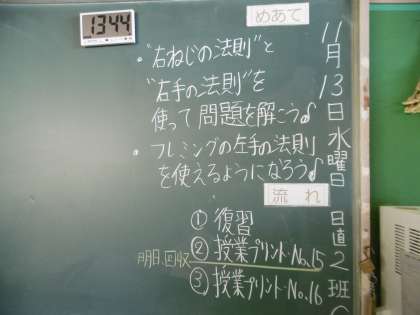 1344
めあて
11月13日水曜日
日直2班
・"右ねじの法則"と
"右手の法則"を
使って問題を解こう♪
・フレミングの左手の法則
を使えるようになろう♪
流れ
①復習
②授業プリント・No.15
明日、回収
③授業プリント・No.16